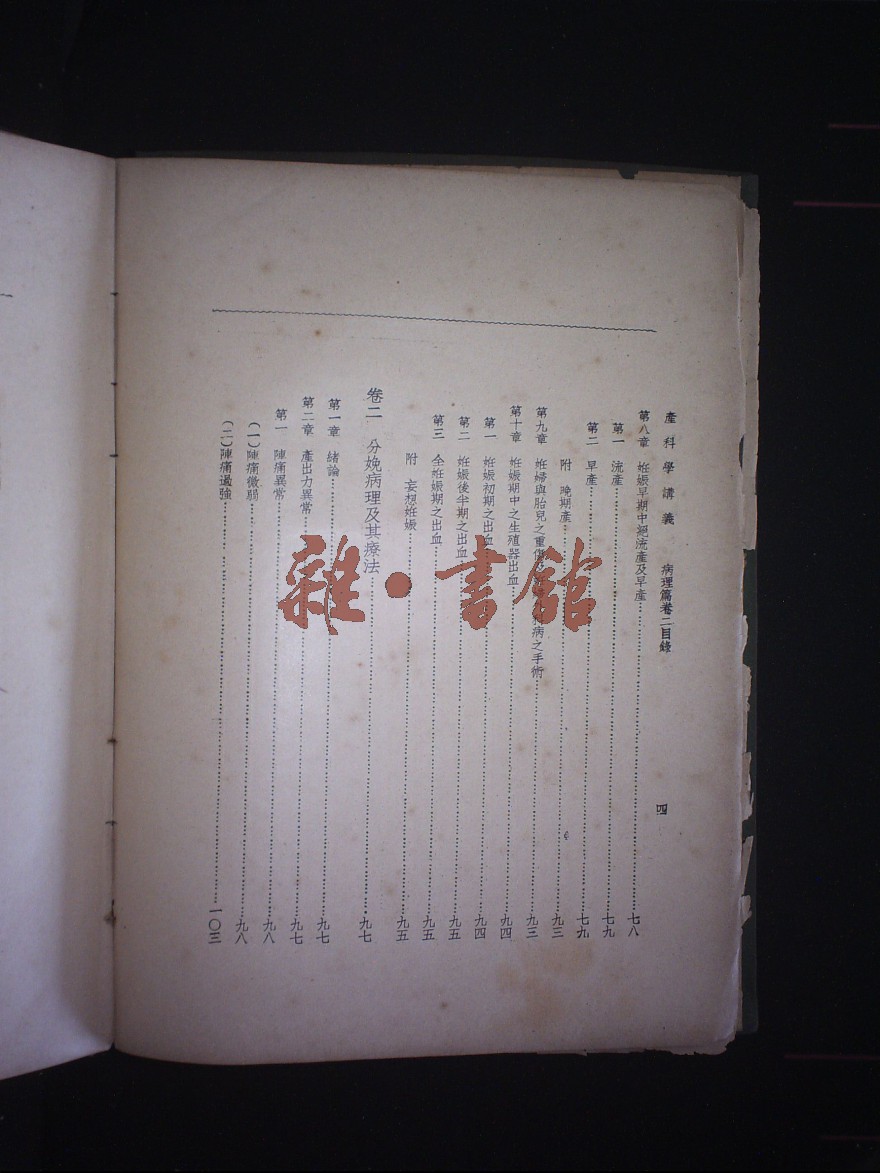 產科學講義 病理篇卷二目錄 四
第八章 妊娠早期中絕流產及早產 七八
第一 流產 七九
第二 早產 七九
附 晚期產 九三
第九章 妊婦與胎兒之重傷及 病之手術 九三
第十章 妊娠期中之生殖器出血 九四
第一 妊娠初期之出血 九四
第二 妊娠後半期之出血 九五
第三 全妊娠期之出血 九五
附 妄想妊娠 九五
卷二 分娩病理及其療法 九七
第一章 緒論 九七
第二章 產出力異常 九七
第一 陣痛異常 九八
(一)陣痛微弱 九八
(二)陣痛過強 一〇三
雜·書館